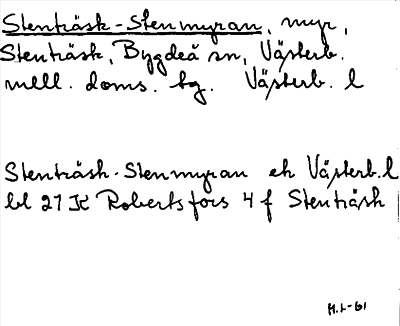 Stenträsk-Stenmyran, myr,
Stenträsk, Bygdeå sn, Västerb.
mell. doms. tg. Västerb. l
Stenträsk-Stenmyran ek Västerb. l
bl 21 K Robertsfors 4 f Stenträsk
M.L-61